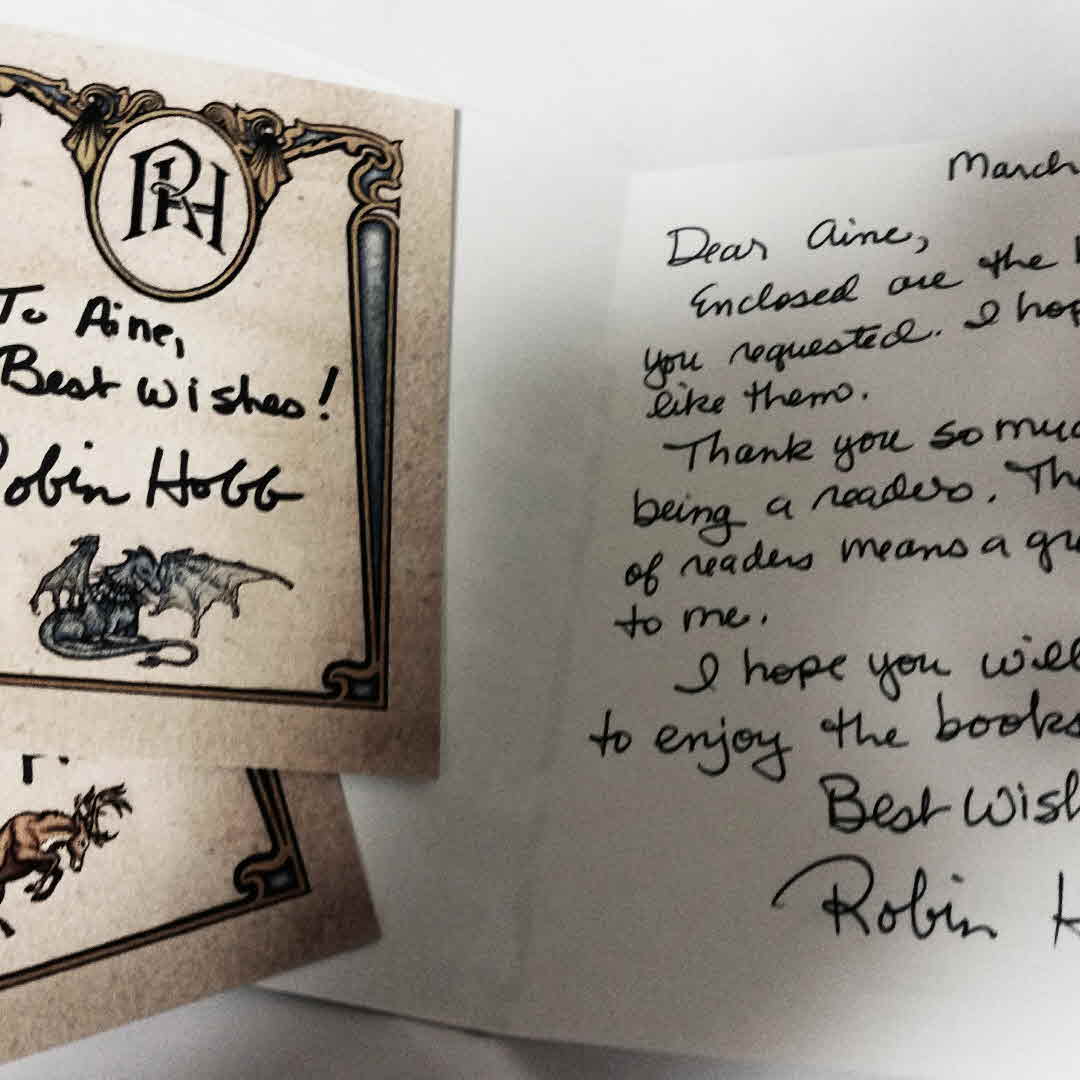 RH
To Aine,
Best Wishes!
Robin Hobb
March
Dear Aine,
Enclosed are the
you requested. I hop
like them.
Thank you so muc
being a readers. Th
of readers means a gre
to me.
I hope you will
to enjoy the books
Best Wish
Robin H